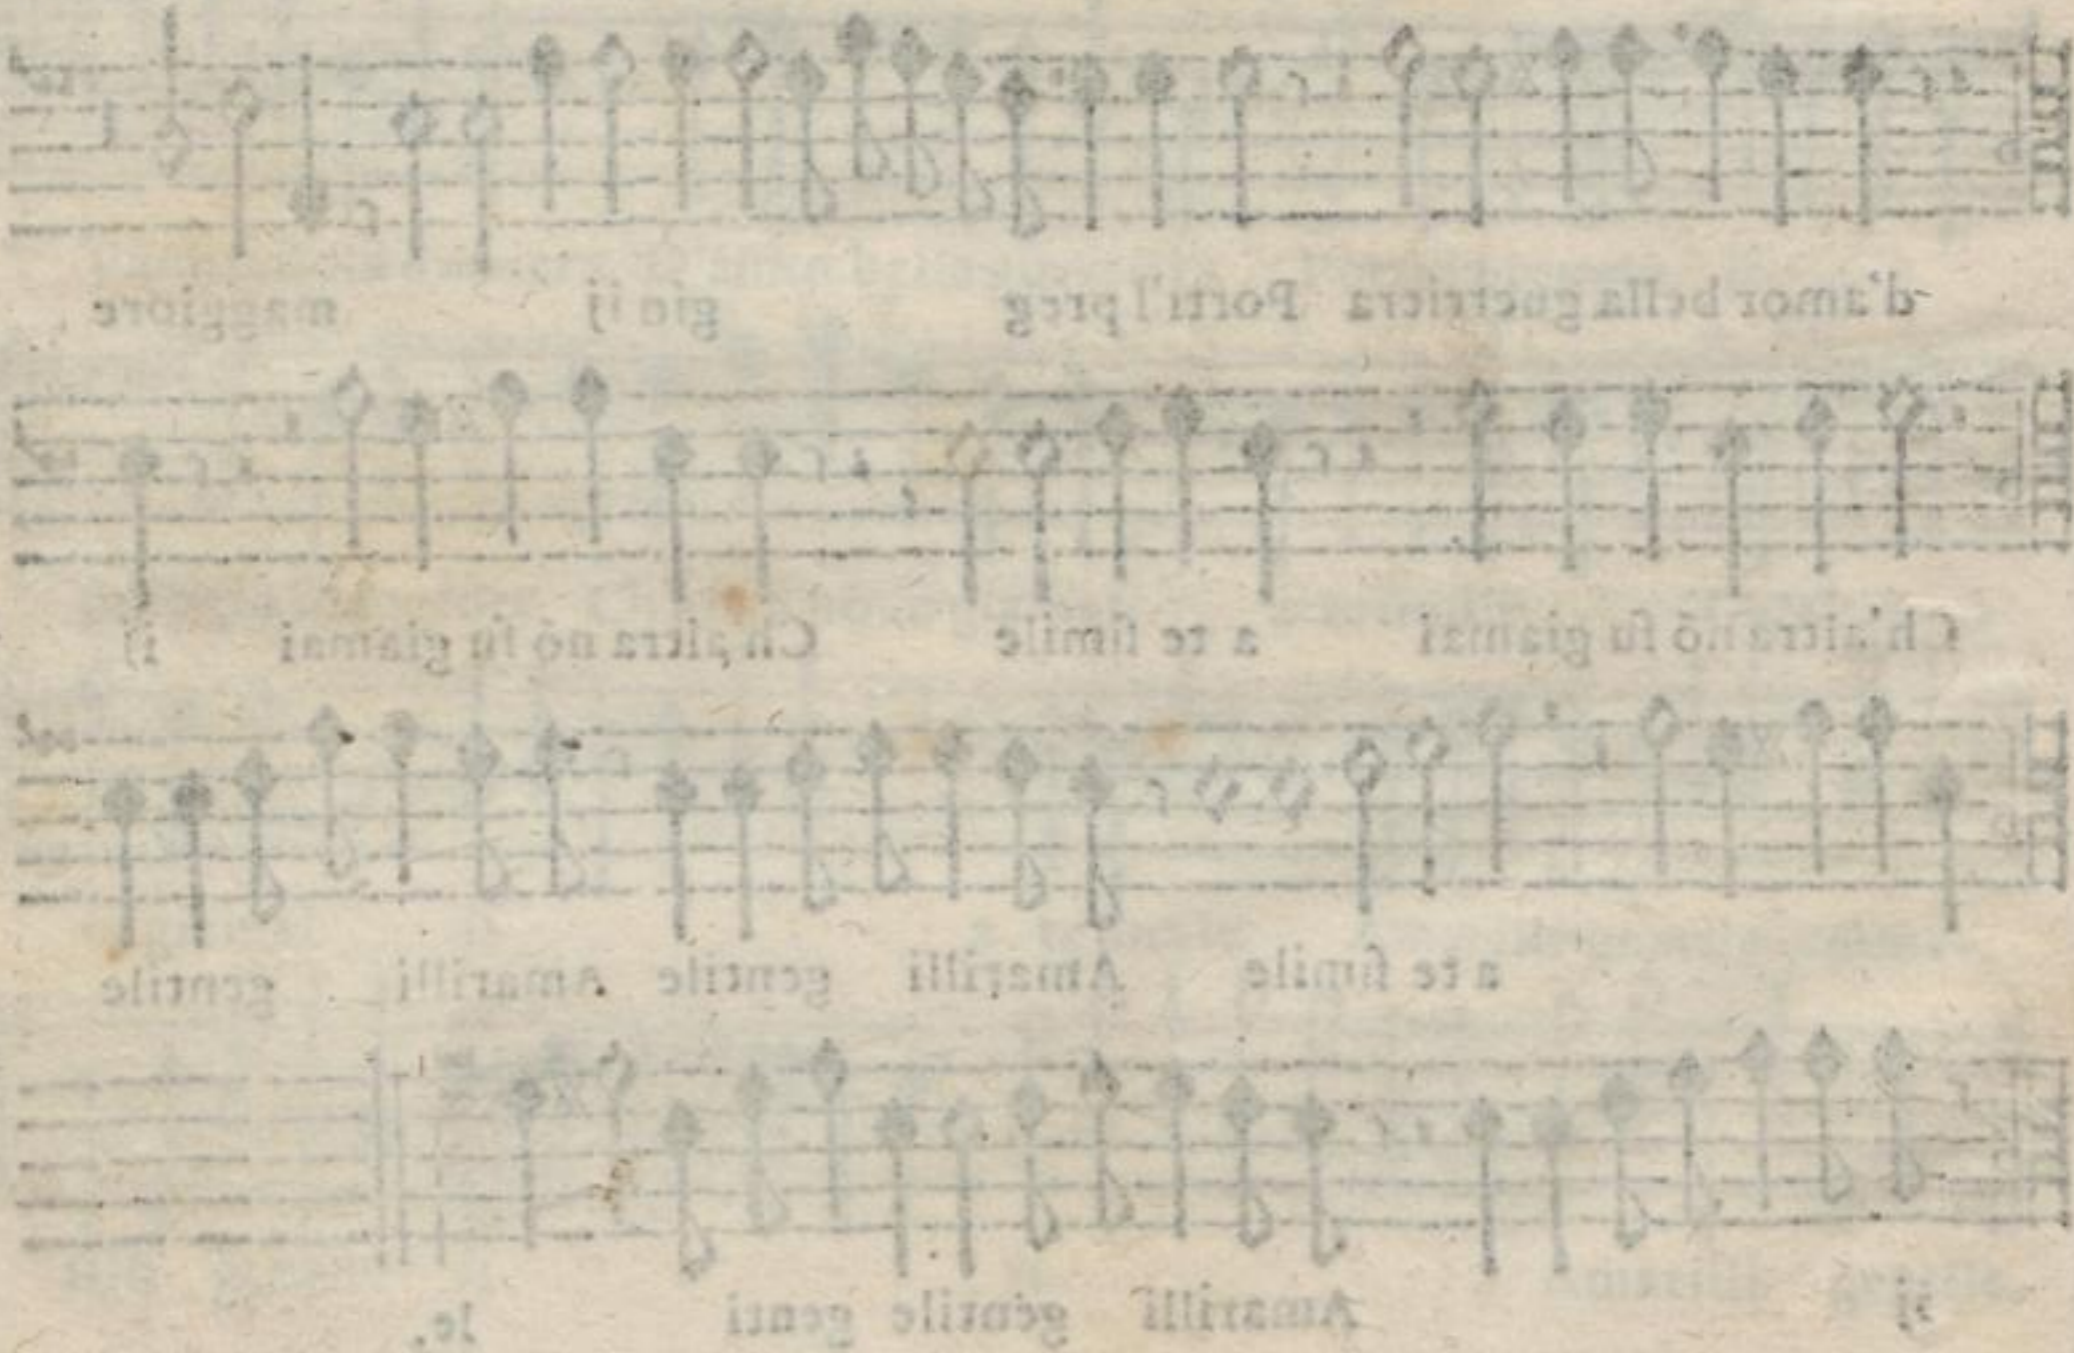 d'amor bella guerreiera Porti'l preg gio ij maggiore
Ch'altra nō fu giamai a te ſimile Ch'altra nō fu giamai ij
a te ſimile Amarilli gentile Amarilli gentile
ij Amarilli gentile genti le.